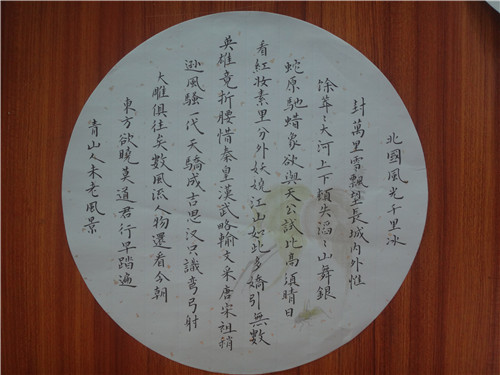 北國風光千里冰
封萬里雪飄望長城內外惟
馀莽〻大河上下頓失滔〻山舞銀
蛇原馳蜡象欲與天公試比高須晴日
看紅妝素里分外妖嬈江山如此多嬌引無數
英雄竟折腰惜秦皇漢武略輸文采唐宋祖稍
遜風騷一代天驕成吉思汉只識彎弓射
大雕俱往矣數風流人物還看今朝
東方欲曉莫道君行早踏遍
青山人未老風景